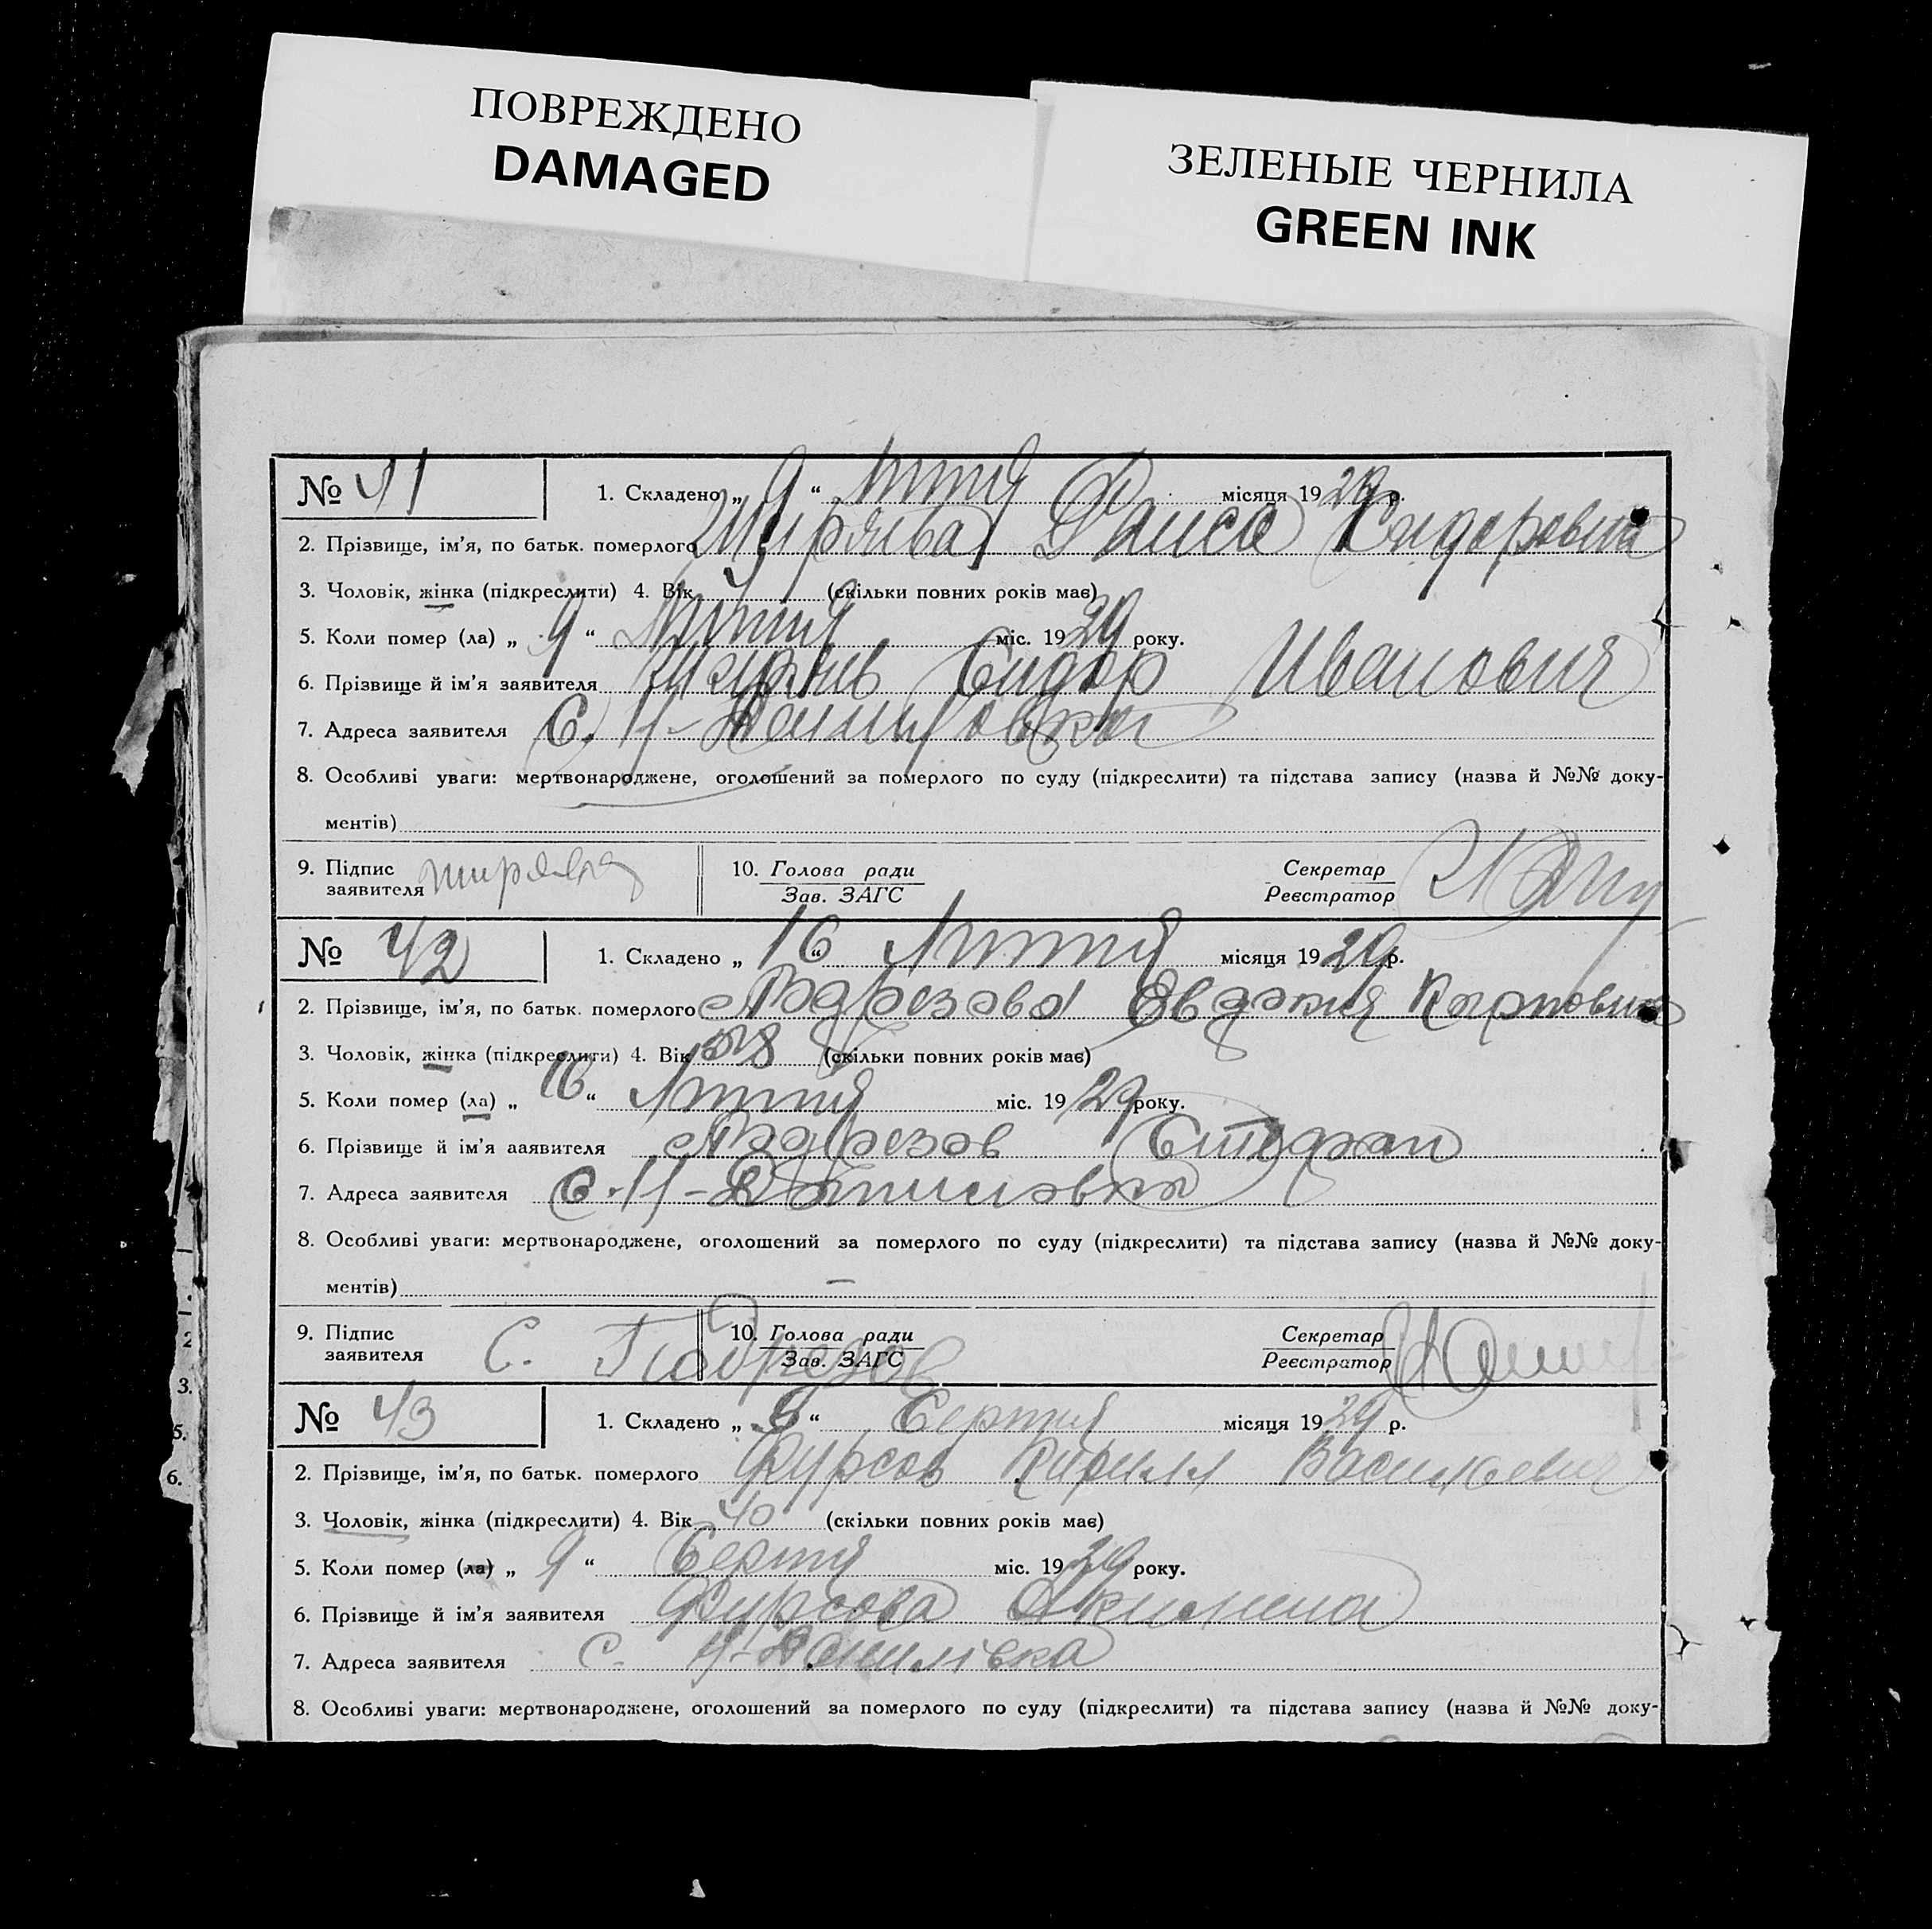 ПОВРЕЖДЕНО
DAMAGED
ЗЕЛЕНЫЕ ЧЕРНИЛА
GREEN INK
№ 41
1. Складено „ 9 “ Липня місяця 1929 р.
2. Прізвище, ім'я, по батьк. померлого Ширяева Раиса Сидоровна
3. Чоловік, жінка (підкреслити) 4. Вік (скільки повних років має)
5. Коли помер (ла) „ 9 “ Липня міс. 1929 року.
6. Прізвище й ім'я заявителя Сидор Иванович
7. Адреса заявителя С. Н-Даниловка
8. Особливі уваги: мертвонароджене, оголошений за померлого по суду (підкреслити) та підстава запису (назва й №№ доку-
ментів)
9. Підпис
заявителя
10. Голова ради
Зав. ЗАГС
Секретар
Реєстратор
№ 42
1. Складено „ 16 “ Липня місяця 1929 р.
2. Прізвище, ім'я, по батьк. померлого Евдокия Карповна
3. Чоловік, жінка (підкреслити) 4. Вік (скільки повних років має)
5. Коли помер (ла) „ 16 “ Липня міс. 1929 року.
6. Прізвище й ім'я ааявителя Стефан
7. Адреса заявителя С. Н-Даниловка
8. Особливі уваги: мертвонароджене, оголошений за померлого по суду (підкреслити) та підстава запису (назва й №№ доку-
ментів) —
9. Підпис
заявителя С.
10. Голова ради
Зав. ЗАГС
Секретар
Реєстратор
№ 43
1. Складено „ 9 “ Серпня місяця 1929 р.
2. Прізвище, ім'я, по батьк. померлого Фурсов Кирилл Василевич
3. Чоловік, жінка (підкреслити) 4. Вік 40 (скільки повних років має)
5. Коли помер (ла) „ 9 “ Серпня міс. 1929 року.
6. Прізвище й ім'я заявителя Фурсова Акилина
7. Адреса заявителя С. Н-Данилівка
8. Особливі уваги: мертвонароджене, оголошений за померлого по суду (підкреслити) та підстава запису (назва й №№ доку-
2
3.
5.
6.